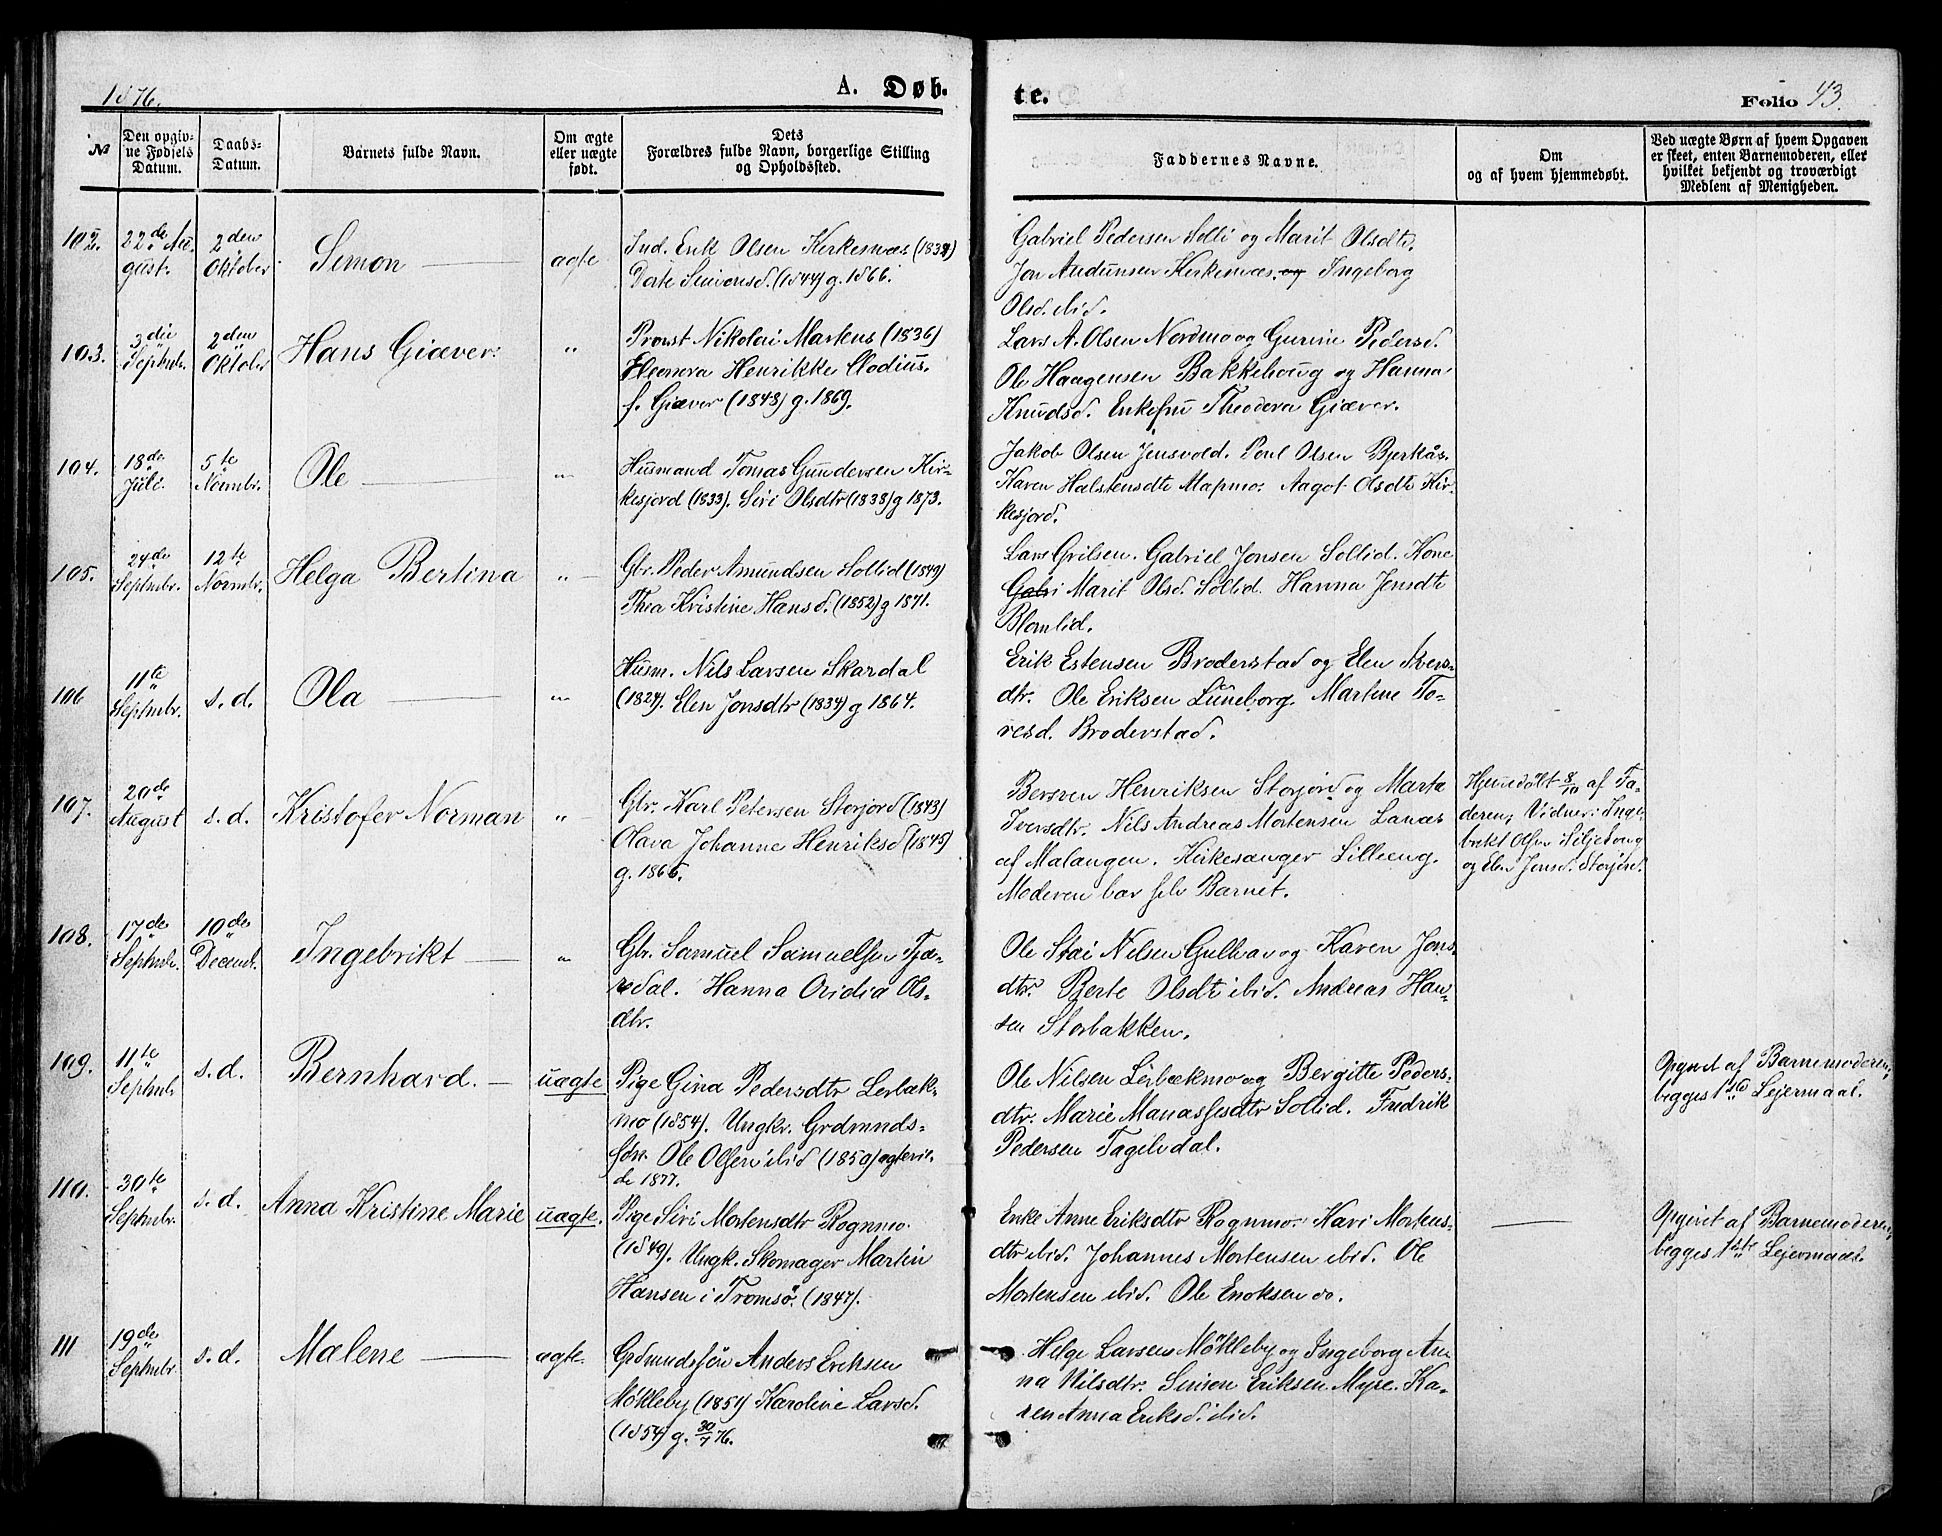 1876.
A. Døb.
te.
Folio 43.
№
Den opgiv-
ne Fødsels
Datum.
Daabs-
Datum.
Barnets fulde Navn.
Om ægte
eller uægte
født.
Dets
Forældres fulde Navn, borgerlige Stilling
og Opholdssted.
Faddernes Navne.
Om
og af hvem hjemmedøbt.
Ved uægte Børn af hvem Opgaven
er skeet, enten Barnemoderen, eller
hvilket bekjendt og troværdigt
Medlem af Menigheden.
102.
22de Au-
gust.
2den
Oktober
Simon
ægte
Ind. Erik Olsen Kirkesnæs (1834)
Dorte Simonsd. (1844) g. 1866.
Gabriel Pedersen Solli og Marit Olsdtr.
Jon Audunsen Kirkesnæs og Ingeborg
Olsd. ibid.
103.
3die
Septmbr.
2den
Oktober
Hans Giæver
"
Provst Nikolai Martens (1836)
Eleonora Henrikke Clodius
f. Giæver (1848) g. 1869.
Lars A. Olsen Nordmo og Gurine Pedersd.
Ole Haagensen Bakkehoug og Hanna
Knudsd. Enkefru Theodora Giæver.
104.
18de
Juli.
5te
Novmbr.
Ole
"
Husmand Tomas Gundersen Kir-
kesjord (1833). Siri Olsdtr (1838) g 1873.
Jakob Olsen Jensvold. Poul Olsen Bjerkås.
Karen Halstensdtr Mapmo. Aagot Olsdtr Kir-
kesjord.
105.
24de
Septmbr.
12te
Novmbr.
Helga Bertina
"
Gbr. Peder Amundsen Sollid (1849)
Thea Kristine Hansd. (1852) g 1871.
Lars Grilsen. Gabriel Jonsen Sollid. Kone
Gabri Marit Olsd. Sollid. Hanna Jonsdtr
Blomlid.
106
11te
Septmbr.
s. d.
Ola
"
Husm. Nils Larsen Skardal
(1824). Elen Jonsdtr (1834) g 1864.
Erik Estensen Broderstad og Elen Ivers-
dtr. Ole Eriksen Luneborg. Martine To-
resd. Broderstad.
107.
20de
August
s. d.
Kristofer Norman
"
Gbr. Karl Petersen Storjord (1843)
Olava Johanne Henriksd (1845)
g. 1866.
Bersven Henriksen Storjord og Marta
Iversdtr. Nils Andreas Mortensen Lanæs
af Malangen. Kirkesanger Lilleeng.
Moderen bar selv Barnet.
Hjemedøbt 8/10 af Fa-
deren, Vidner: Inge-
brikt Olsen Siljeboug
og Elen Jonsd. Storjord.
108.
17de
Septmbr.
10de
Decembr.
Ingebrikt
"
Gbr. Samuel Samuelsen Tja-
redal. Hanna Ovidia Ols-
dtr.
Ole Stai Nilsen Gulhav og Karen Jons-
dtr. Berte Olsdtr ibid. Andreas Han-
sen Storbakken.
109.
11te
Septmbr
s. d.
Bernhard.
uægte
Pige Gina Pedersdtr Lerbæk-
mo (1854). Ungkr. Grdmands-
søn Ole Olsen ibid (1850) agtevi-
de 1877.
Ole Nilsen Lerbækmo og Bergitte Peders-
dtr. Marie Manassesdtr Sollid. Fredrik
Pedersen Fagelidal.
Opgivet af Barnemoderen,
begges 1ste Lejermaal.
110.
30te
Septmbr.
s. d.
Anna Kristine Marie
uægte.
Pige Siri Mortensdtr Rognmo
(1849). Ungk. Skomager Martin
Hansen i Tromsö. (1847).
Enke Anne Eriksdtr Rognmo. Kari Mortens-
dtr ibid. Johannes Mortensen ibid. Ole
Mortensen ibid. Ole Enoksen do.
Opgivet af Barnemoderen,
begges 1ste Lejermaal.
111
19de
Septmbr.
s. d.
Malene
ægte.
Grdmandssön Anders Eriksen
Mökleby (1851) Karoline Larsd.
(1854) g. 30/7 76.
Helge Larsen Mökleby og Ingeborg An-
na Nilsdtr. Simon Eriksen Myre. Ka-
ren Anna Eriksd. ibid.